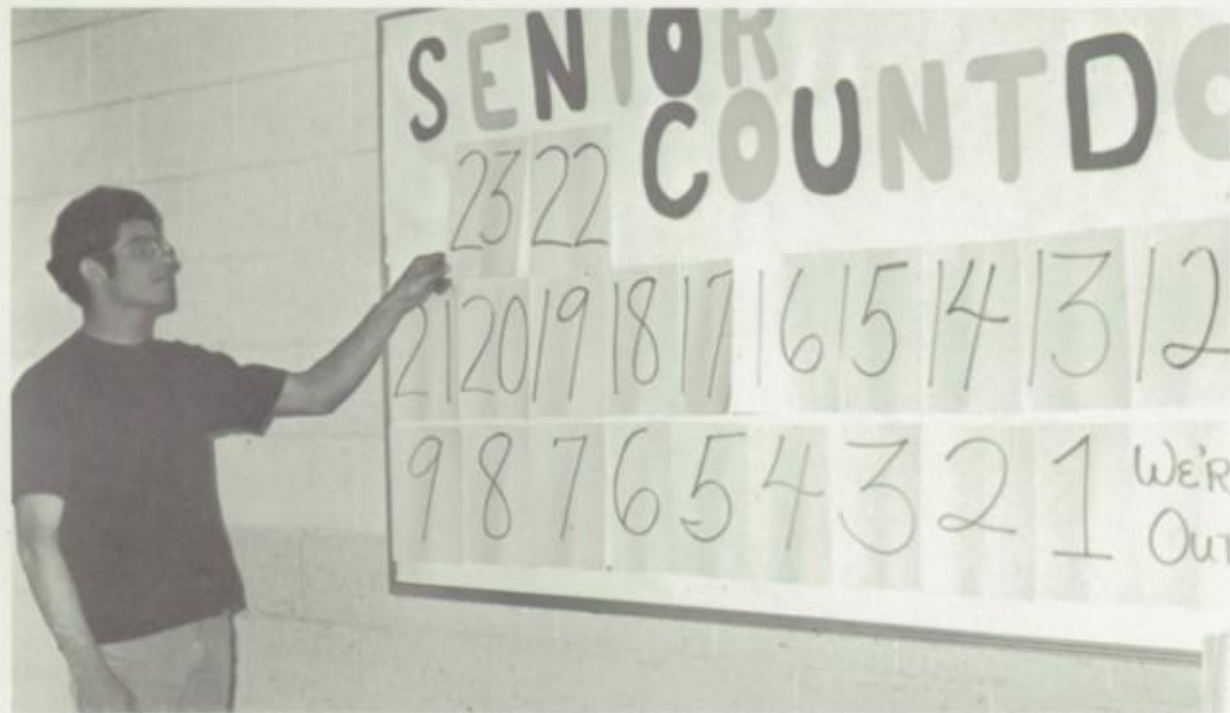 SENIOR
COUNTDO
23 22
21 20 19 18 17 16 15 14 13 12
9 8 7 6 5 4 3 2 1
WE'R
OUT